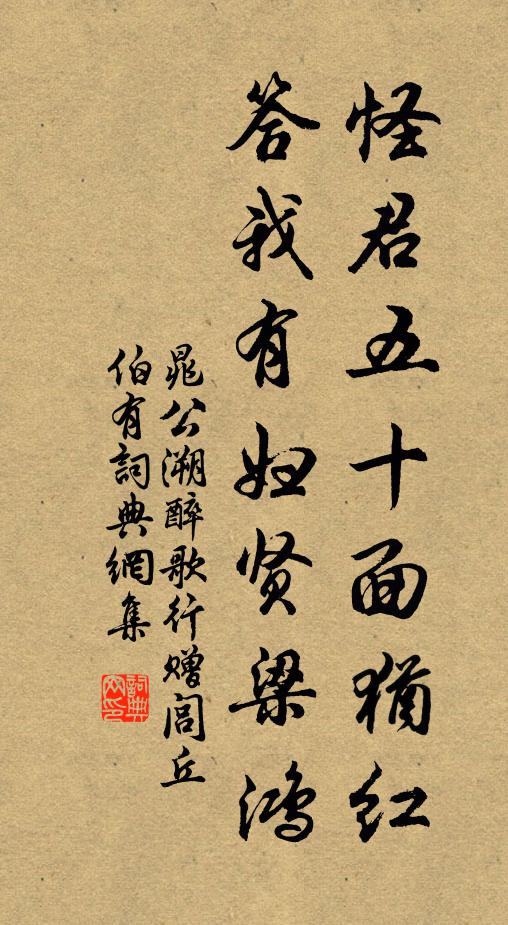 怪君五十面犹红
答我有妇贤梁鸿
晁公溯醉歌行赠闾丘
伯有詞典網集
詞典网印